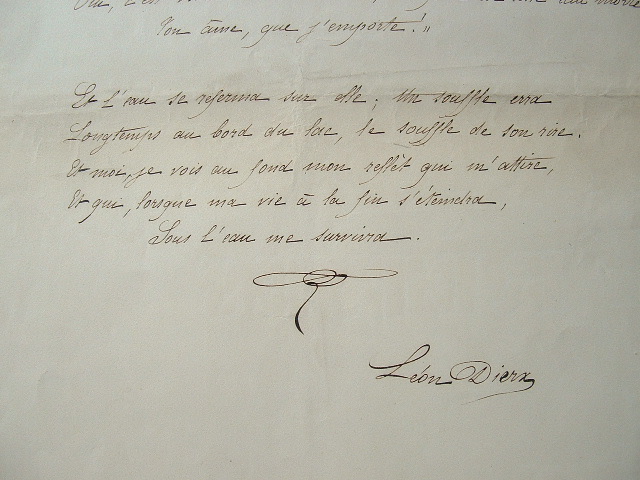 Oui, c'est
Ton âme, que j'emporte!"
Et l'eau se referma sur elle; Un souffle erra
Longtemps au bord du lac, le souffle de son rire.
Et moi, je vois au fond mon reflêt qui m'attire,
Et qui, lorsque ma vie à la fin s'éteindra,
Sous l'eau me survivra.
Léon Dierx